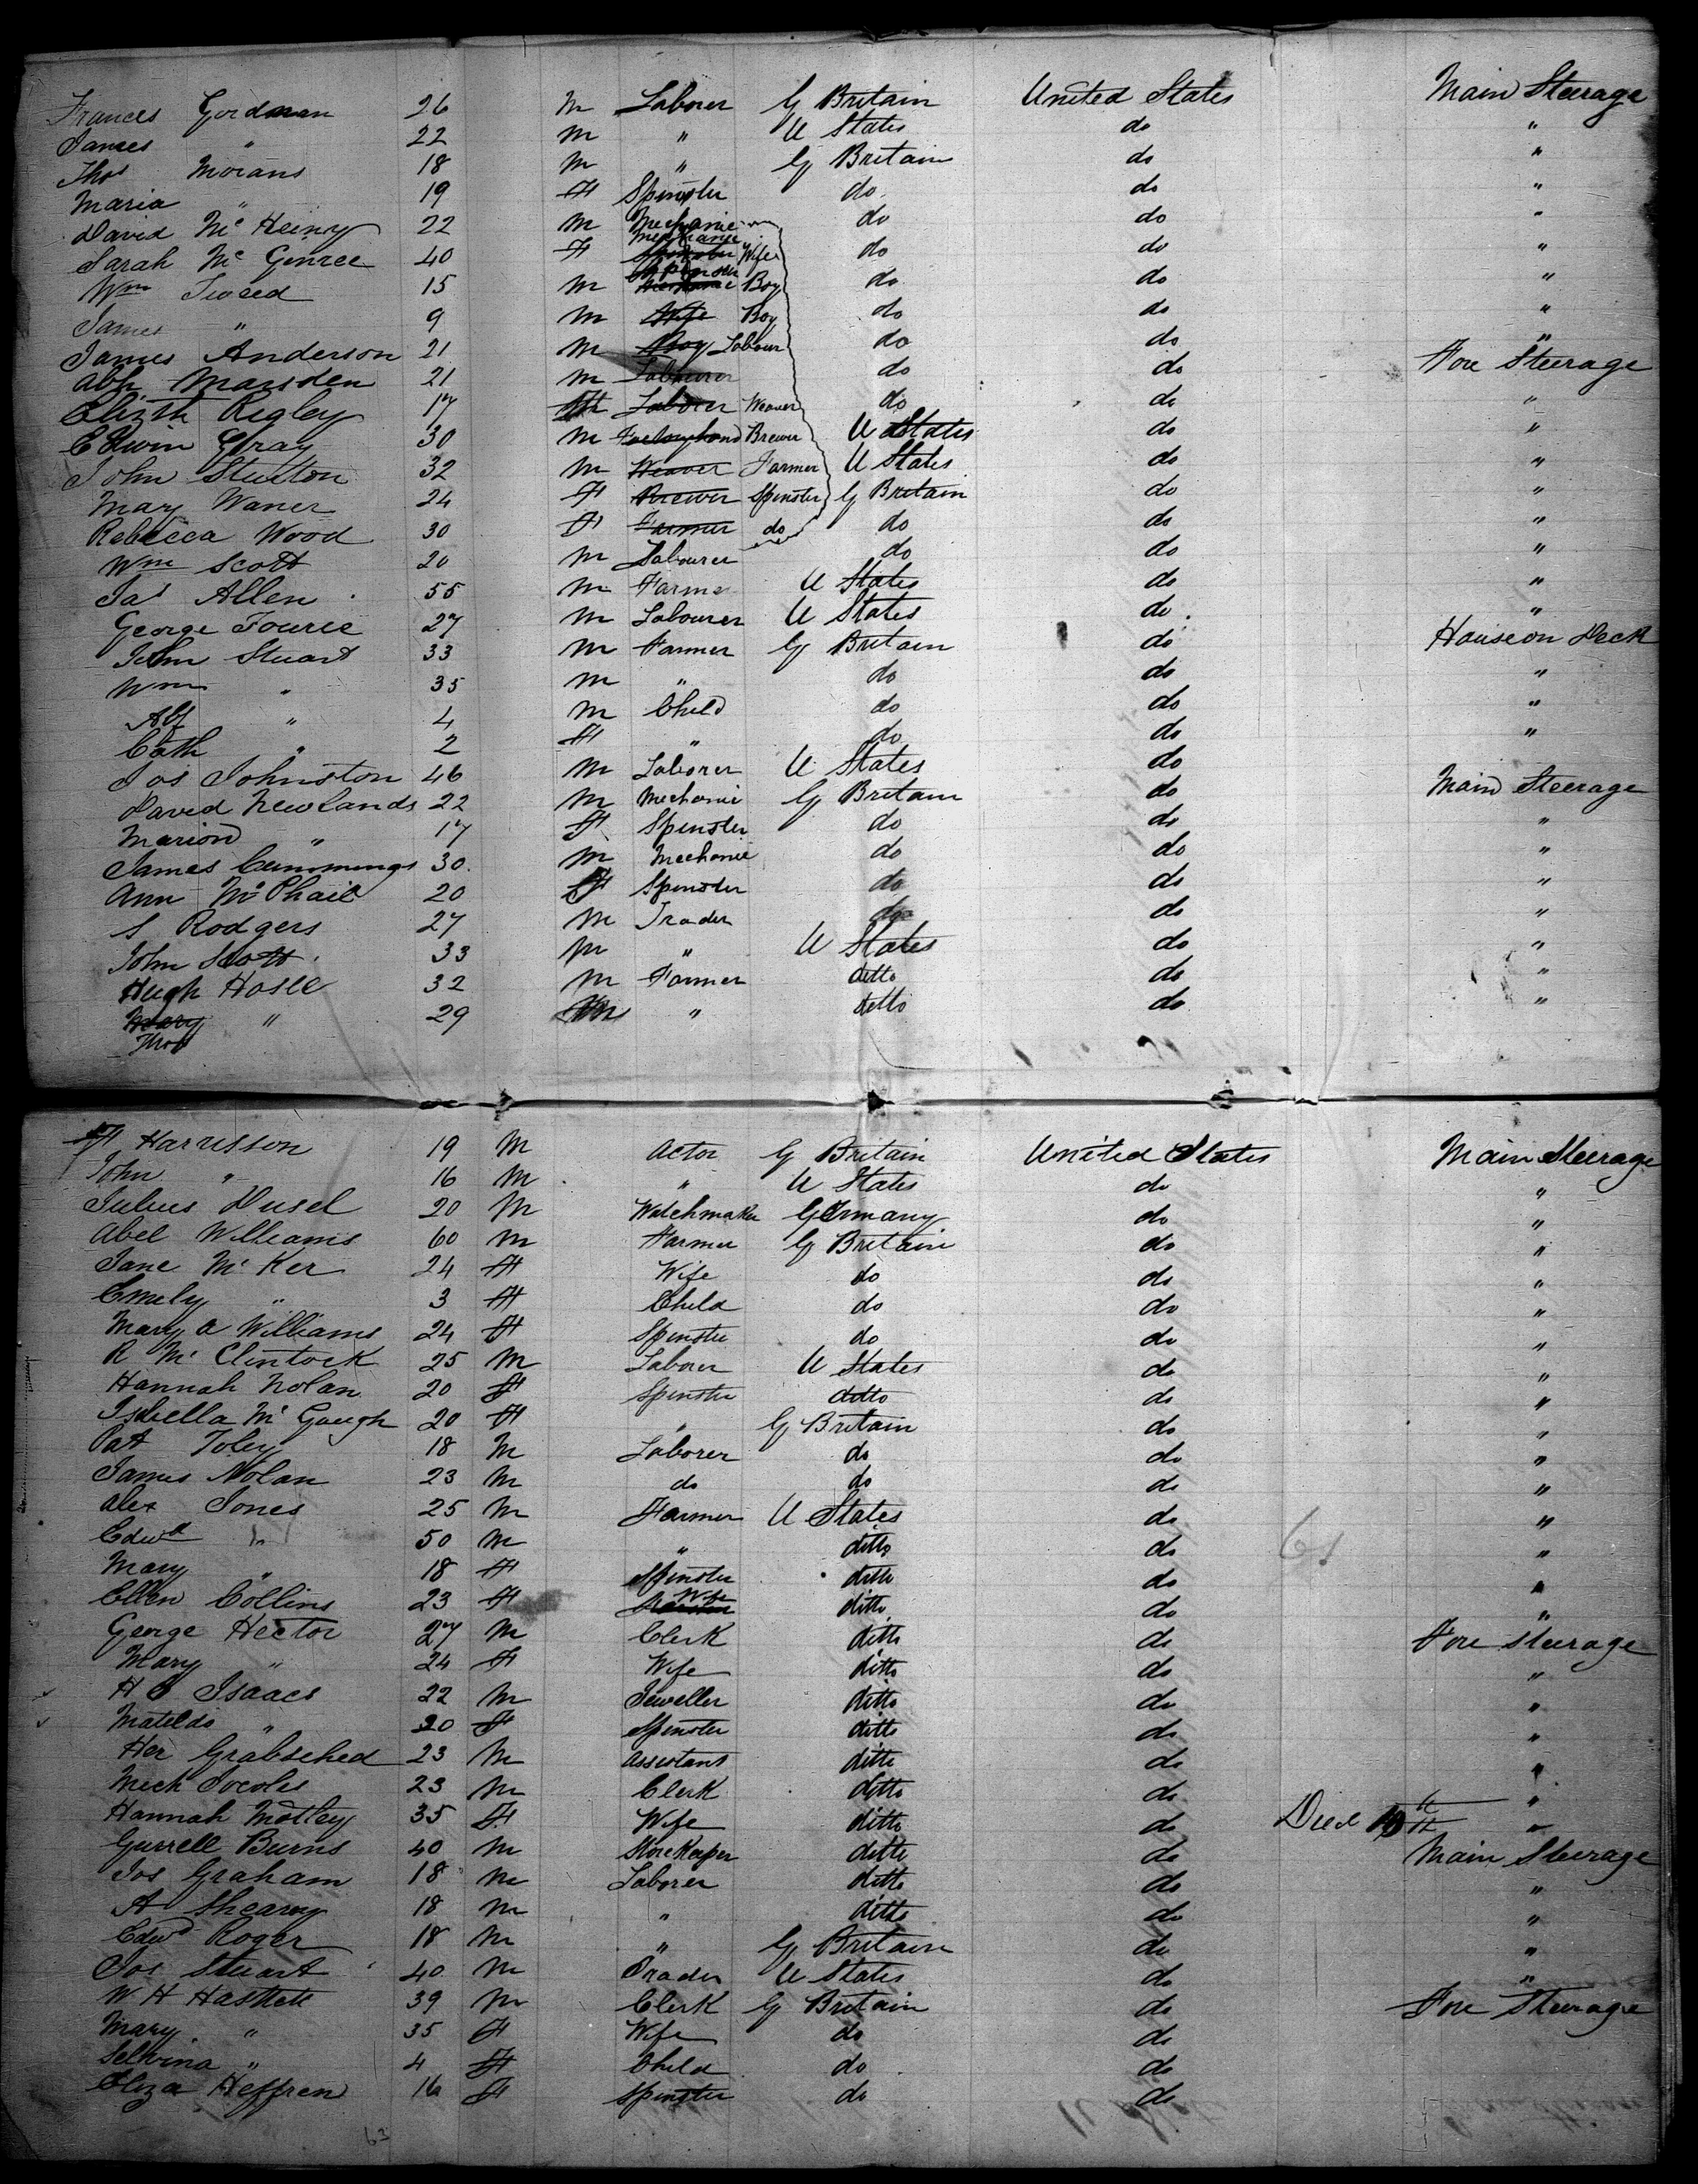 Frances Gordman 26 M Laborer G Britain United States Main Steerage
James " 22 M " U States do "
Thos Morans 18 M " G Britain do "
Maria " 19 F Spinster do do "
David Mc Heiny 22 M Mechanic do do "
Sarah Mc Genree 40 F Wife do do "
Wm Tweed 15 M Boy do do "
James " 9 M Wife Boy do do "
James Anderson 21 M Boy Labour do do "
Abh Marsden 21 M Labourer do do Fore Steerage
Elizth Rigley 17 F Laborer Weaver do do "
Edwin Gray 30 M Factoryhand Brewer U States do "
John Stutton 32 M Weaver Farmer U States do "
Mary Waner 24 F Brewer Spinster G Britain do "
Rebecca Wood 30 F Farmer do do do "
Wm Scott 20 M Labourer do do "
Jas Allen 55 M Farmer U States do "
George Fourie 27 M Labourer U States do "
John Stuart 33 M Farmer G Britain do House on Deck
Wm " 35 M " do do "
Alf " 4 M Child do do "
Cath " 2 F " do do "
Jos Johnston 46 M Laborer U States do
David Newlands 22 M Mechanic G Britain do Main Steerage
Marion " 17 F Spinster do do "
James Cummings 30 M Mechanic do do "
Ann McPhail 20 F Spinster do do "
S Rodgers 27 M Trader do do "
John Scott 33 M " U States do "
Hugh Hasle 32 M Farmer ditto do "
Mary " 29 M " ditto do "
Thos
H Harrisson 19 M Actor G Britain United States Main Steerage
John " 16 M " U States do "
Julius Dusel 20 M Watchmaker Germany do "
Abel Williams 60 M Farmer G Britain do "
Jane Mc Ker 24 F Wife do do "
Emely " 3 F Child do do "
Mary A Williams 24 F Spinster do do "
R McClintock 25 M Laborer U States do "
Hannah Nolan 20 F Spinster ditto do "
Isbella McGaugh 20 F " G Britain do "
Pat Foley 18 M Laborer do do "
James Nolan 23 M do do do "
Alex Jones 25 M Farmer U States do "
Edwd " 50 M " ditto do "
Mary " 18 F Spinster ditto do "
Ellen Collins 23 F Wife ditto do "
George Hector 27 M Clerk ditto do Fore Steerage
Mary " 24 F Wife ditto do "
H Isaacs 22 M Jeweller ditto do "
Matilda " 20 F Spinster ditto do "
Her Grabsched 23 M Assistant ditto do "
Mich Socoles 23 M Clerk ditto do "
Hannah Motley 35 F Wife ditto do Died "
Gurrell Burns 40 M Storekeeper ditto do Main Steerage
Jos Graham 18 M Laborer ditto do "
A Shearny 18 M " ditto do "
Edwd Roger 18 M " G Britain do "
Jos Stuart 40 M Trader U States do "
W H Haskett 39 M Clerk G Britain do Fore Steerage
Mary " 35 F Wife do do
Selvina " 4 F Child do do
Eliza Heffren 16 F Spinster do do